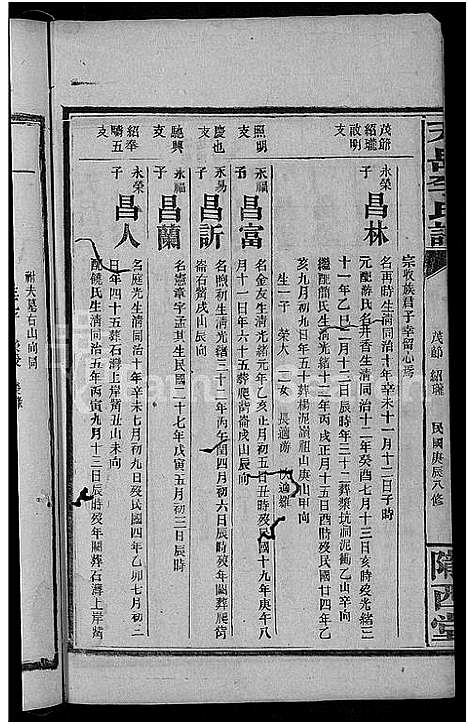 天岳李氏譜
茂節 紹瓏
民國庚辰八修
隴西堂
宗收族君子幸留心焉
茂節
紹瓏
政明
支
永榮
子
昌林
名再時生清同治十年辛未十一月十二日子時
元配薛氏名井香生清同治十二年癸酉七月十三日亥時歿光緒二
十一年乙巳一月十三日辰時年二十三葬漿坑洞泥衕乙山辛向
繼配簡氏生清光緒十二年丙戌正月十五日酉時歿民國廿四年乙
亥九月初九日辰時年五十葬楊泥嶺祖山庚山甲向
生一子 榮大 二女 長適 次適
照明
支
永福
子
昌富
名金友生清光緒元年乙亥正月初五日丑時歿民國十九年庚午八
月十一日年六十五葬爬崗崙戌山辰向
慶也
支
永易
子
昌訢
名煦初生清光緒三十二年丙午閏四月初六日辰時歿年葬爬崗
崙右戌山辰向
馳興
支
永福
子
昌蘭
名憲章字孟其生民國二十七年戊寅五月初二日辰時
紹奉
疇五
支
永榮
子
昌人
名庭光生清同治十年辛未七月初九日歿民國四年乙卯七月初二
日年四十五葬石灣上岸丑山未向
配饒氏生清同治五年丙寅九月十三日辰時歿年闕葬石灣上岸
祔夫墓右山向同